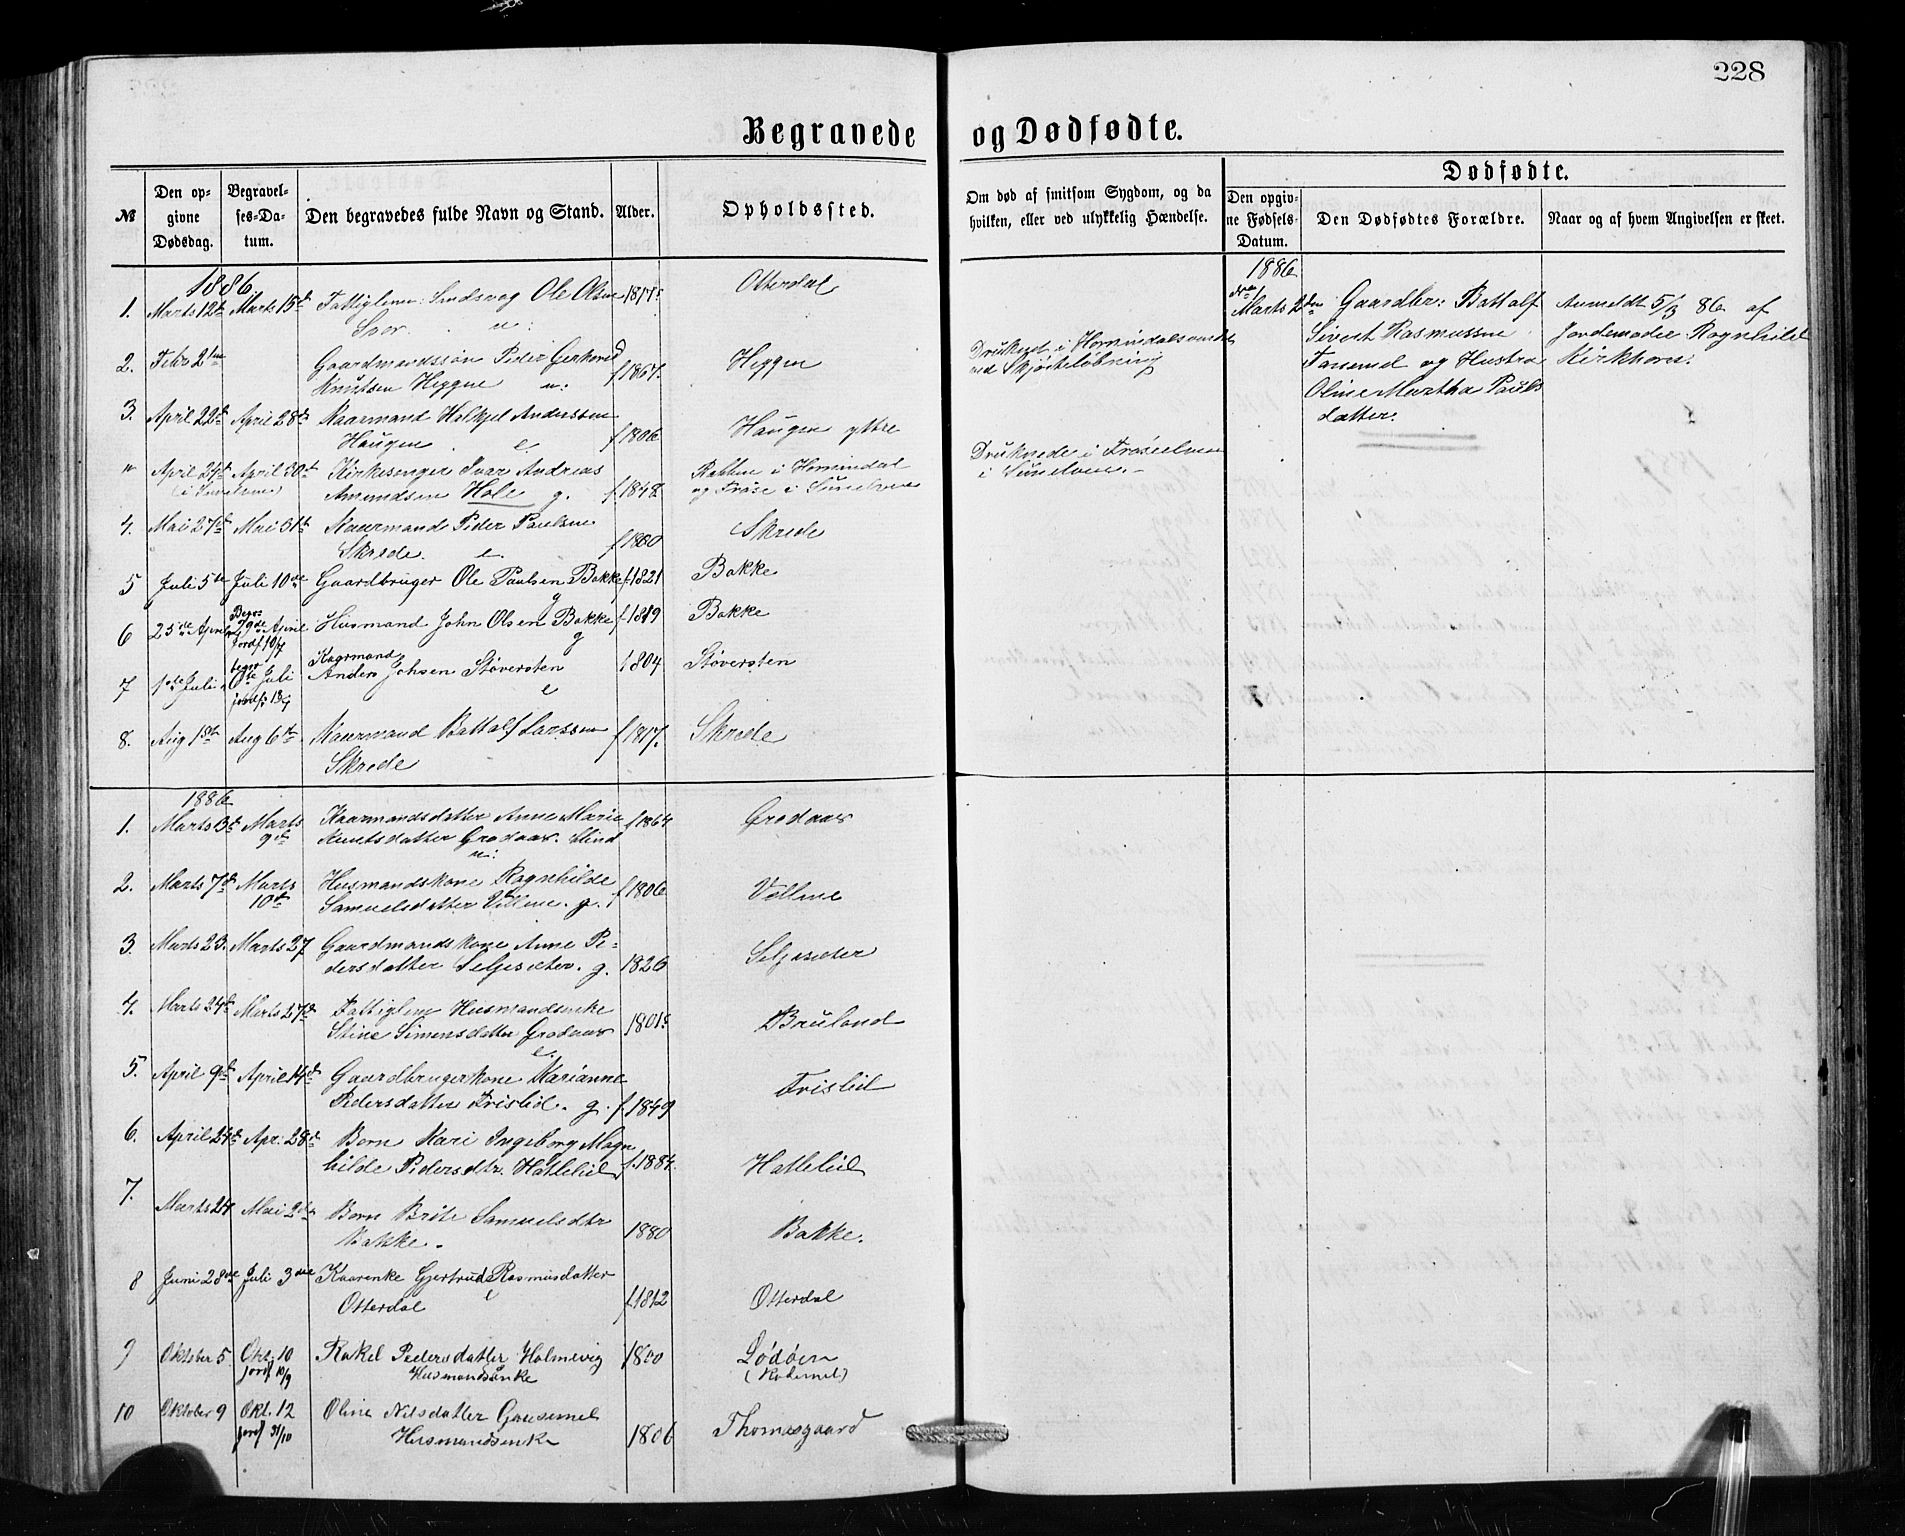 228
Begravede og Dødfødte.
№
Den opgivne Dødsdag.
Begravelses-Datum.
Den begravedes fulde Navn og Stand.
Alder.
Opholdssted.
Om død af smitsom Sygdom, og da hvilken, eller ved ulykkelig Hændelse.
Dødfødte.
Den opgivne Fødsels-Datum.
Den Dødfødtes Forældre.
Naar og af hvem Angivelsen er skeet.
1886.
1. Marts 12te Marts 15de Fattiglem Ole Olsen 1817 Otterdal
2. Febr 2den Gaardmandssøn Peder Gerhard f 1867. Heggen
Knutsen Heggen u.
Druknet i Hornindalsvandet
ved Skjøiteløbning
3. April 22de April 28de Kaarmand Halkjel Anderssen
Haugen e f 1806 Haugen yttre
" April 24de April 30te Kirkesanger Ivar Andreas
Amundsen Hole g. f 1848 i Hornindal
og Frøse i Sunelven
Druknede i Frøseelven
i Sunelven.
4. Mai 27de Mai 31te Kaarmand Peder Paulsen
Skrede. e. f 1800 Skrede
5 Juli 5te Juli 10de Gaardbruger Ole Paulsen Bakke f. 1821 Bakke
g
6 25de April April Husmand John Olsen Bakke f 1819 Bakke
jordf 10/7 g
7 1ste Juli Juli Kaarmand
Anders Johsen Støversten 1804 Støversten
e
8. Aug 1ste Aug 6te Kaarmand Battalf Larssen f 1817. Skrede
Skrede
1886
Marts 2den Gaardbr: Battalf
Sivert Rasmussen
og Hustru
Oline Martha Pauls
datter.
Anmeldt 5/3 86 af
Jordemoder Ragnhild
Kirkhorn.
1886
1. Marts 3de Marts 9de Kaarmandsdatter Anne Marie f 1864 Grodaas
Knutsdatter Grodaas. blind
u.
2. Marts 7de Marts 10de Husmandskone Ragnhilde f 1806 Vollene
Samuelsdatter Vollene. g.
3. Marts 23. Marts 27 Gaardmandskone Anne Pe-
dersdatter Seljesæter. g. 1826 Seljesæter
4. Marts 24de Marts 27de Fattiglem Husmandsenke
Stine Simensdatter Grodaas 1801 Bruland
e.
5. April 9de April 14de Gaardbrugerkone Marianne
Pedersdatter Frislid. g. f. 1849 Frislid
6. April 24de Apr. 28de Barn Kari Ingeborg Magn
hilde Pedersdtr. Hattelid f. 1884. Hattelid
7. Marts 24 Mai 2den Barn Brite Samuelsdtr
Bakke. 1880 Bakke.
8 Juni 28de Juli 3die Kaarenke Gjertrud Rasmusdatter
Otterdal e f. 1812 Otterdal
9 Oktober 5 Okt. 10 Rakel Pedersdatter Holmevig 1800 Lødøen
jordf 10/9 Husmandsenke
10 Oktober 9 Okt. 12 Oline Nilsdatter Gausemel
jordf 31/10 Husmandsenke 1806 Thomasgaard